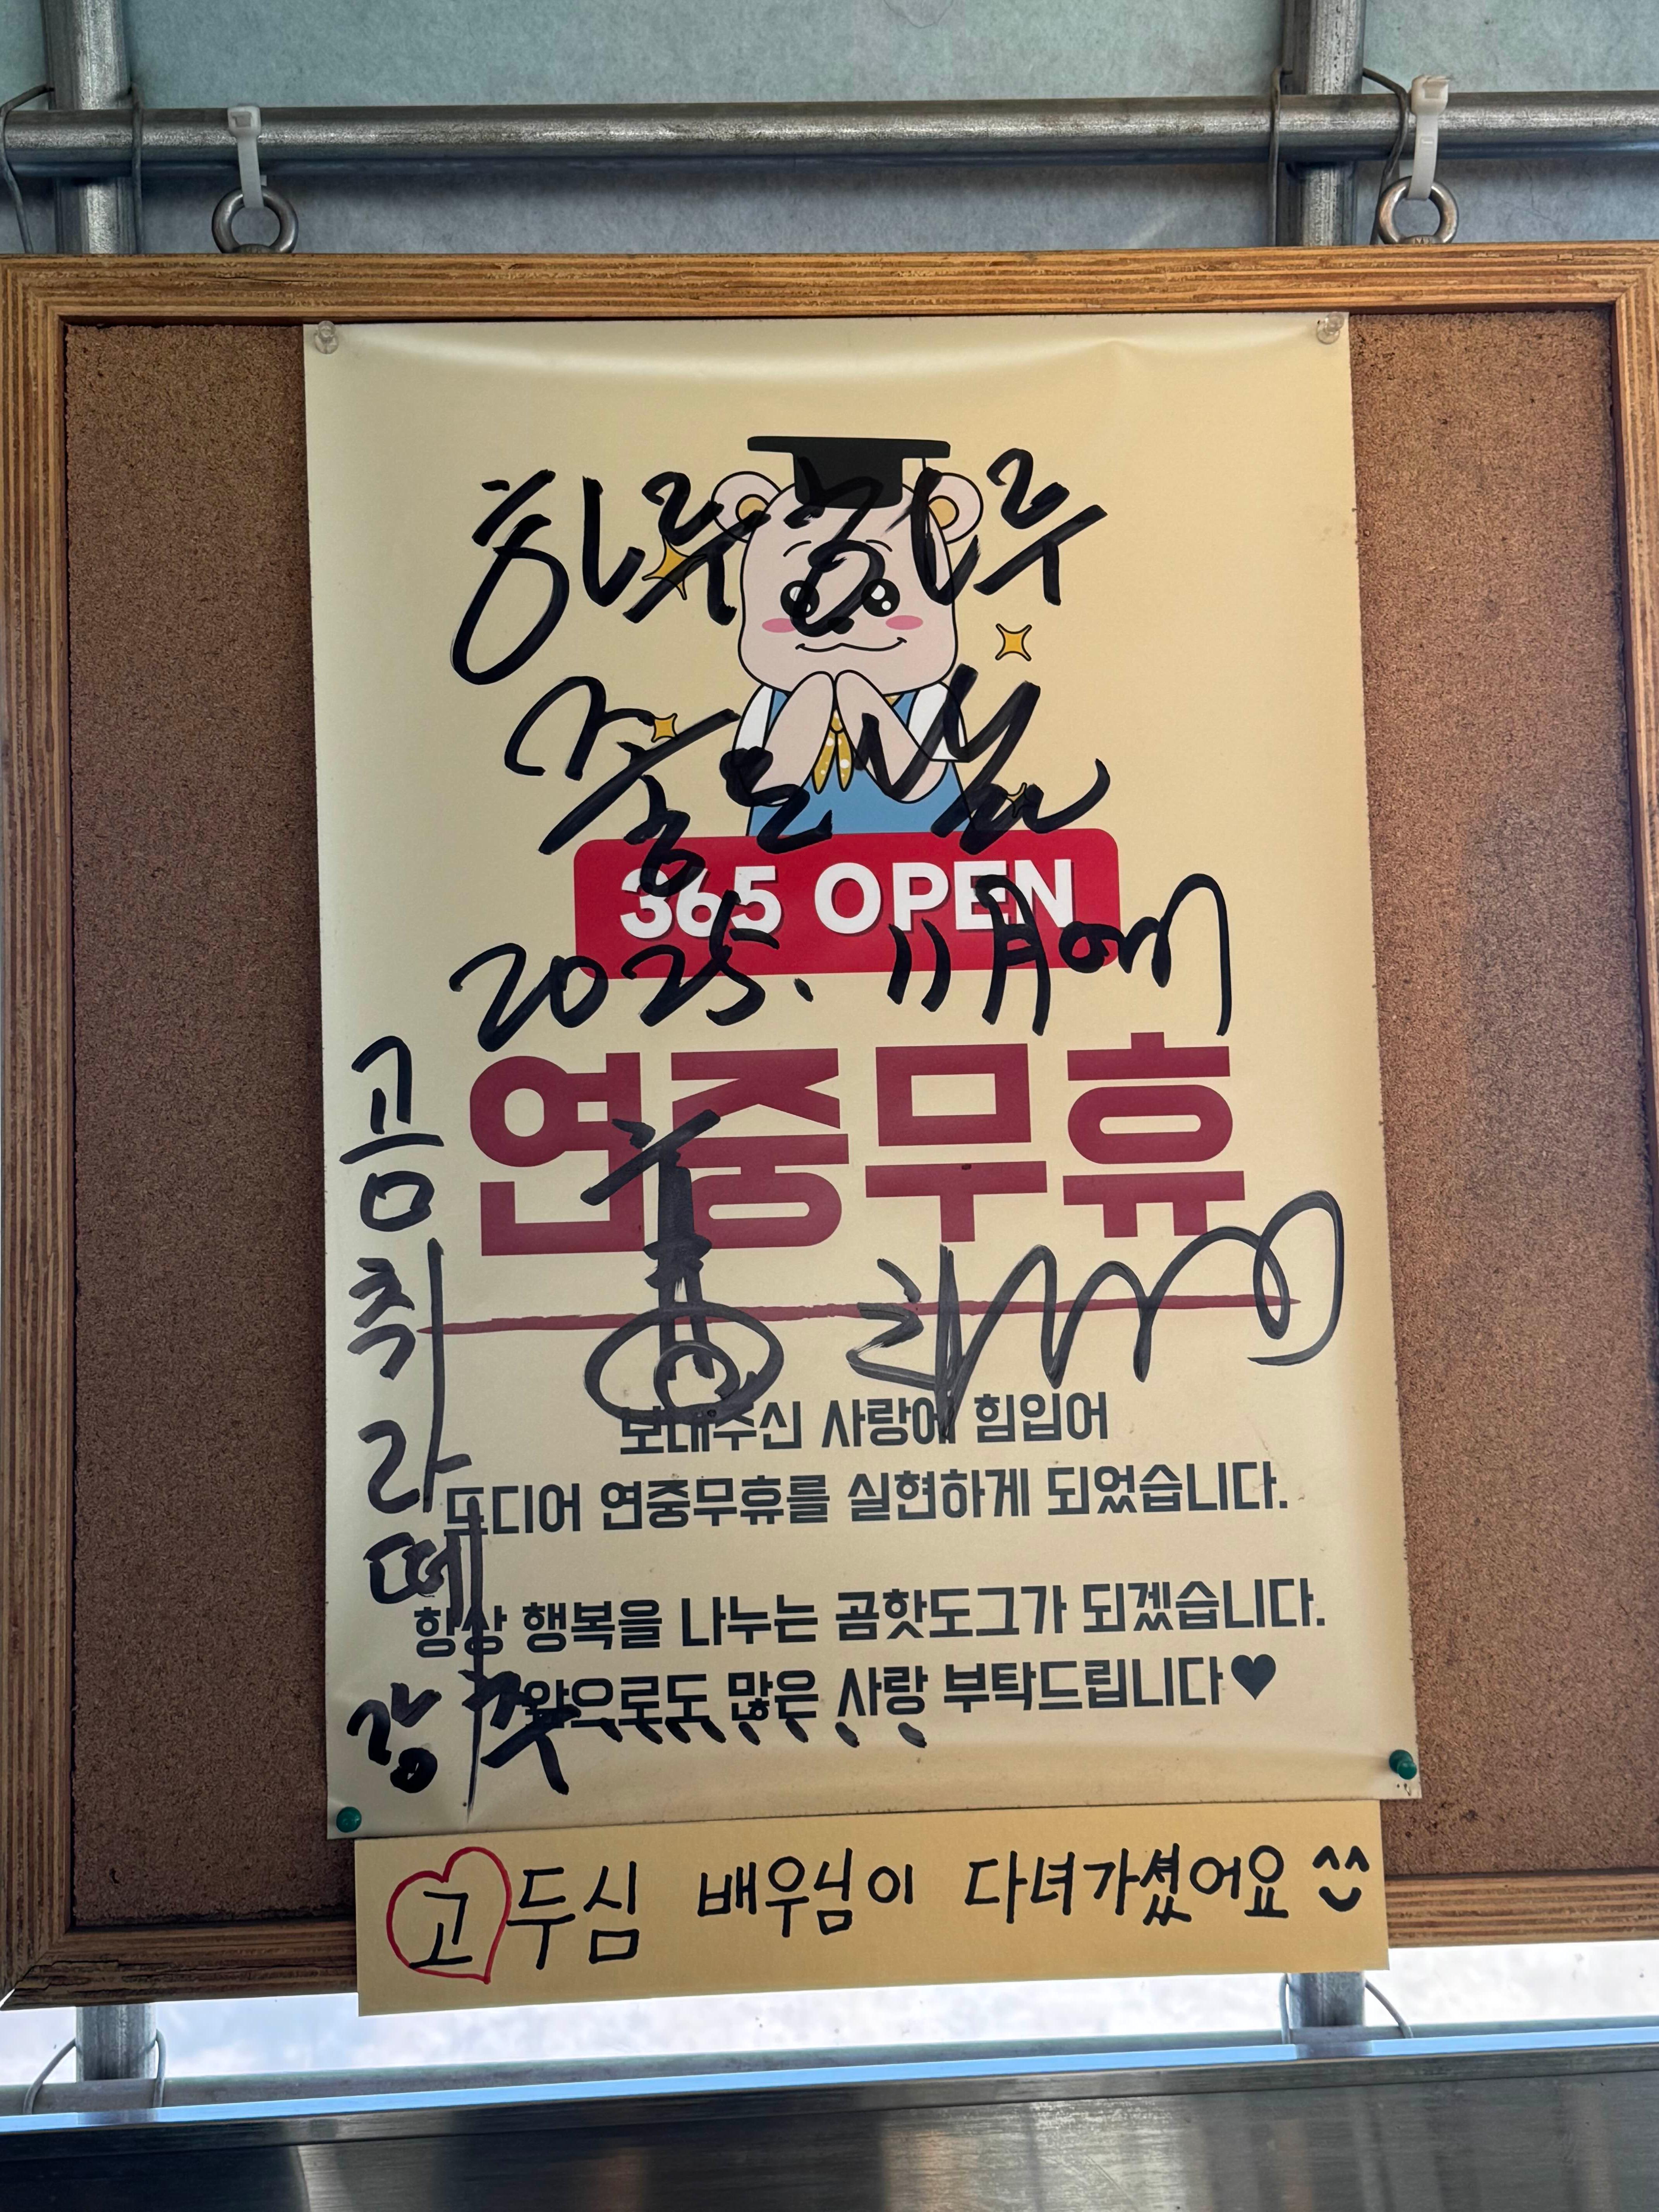 하루하루
좋은날
365 OPEN
2025. 11月에
연중무휴
고두심
보내주신 사랑에 힘입어
드디어 연중무휴를 실현하게 되었습니다.
항상 행복을 나누는 곰핫도그가 되겠습니다.
앞으로도 많은 사랑 부탁드립니다♥
고두심 배우님이 다녀가셨어요 ^^